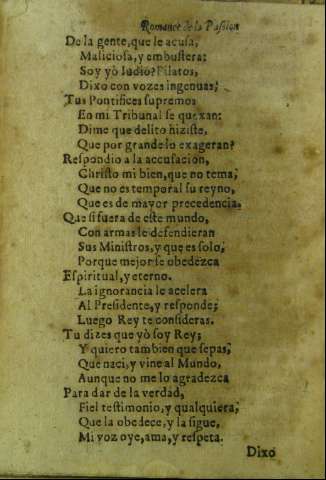 Romance de la Passion
De la gente, que le acusa,
Maliciosa, y embustera:
Soy yò Iudio? Pilatos,
Dixo con vozes ingenuas;
Tus Pontifices supremos
En mi Tribunal se quexan:
Dime que delito hiziste,
Que por grande lo exageran?
Respondio a la accusacion,
Christo mi bien, que no tema,
Que no es temporal su reyno,
Que es de mayor precedencia.
Que si fuera de este mundo,
Con armas le defendieran
Sus Ministros, y que es solo,
Porque mejor se obedezca
Espiritual, y eterno.
La ignorancia le acelera
Al Presidente, y responde;
Luego Rey te consideras.
Tu dizes que yò soy Rey;
Y quiero tambien que sepas,
Que naci, y vine al Mundo,
Aunque no me lo agradezca
Para dar de la verdad,
Fiel testimonio, y qualquiera,
Que la obedece, y la sigue,
Mi voz oye, ama, y respeta.
Dixo